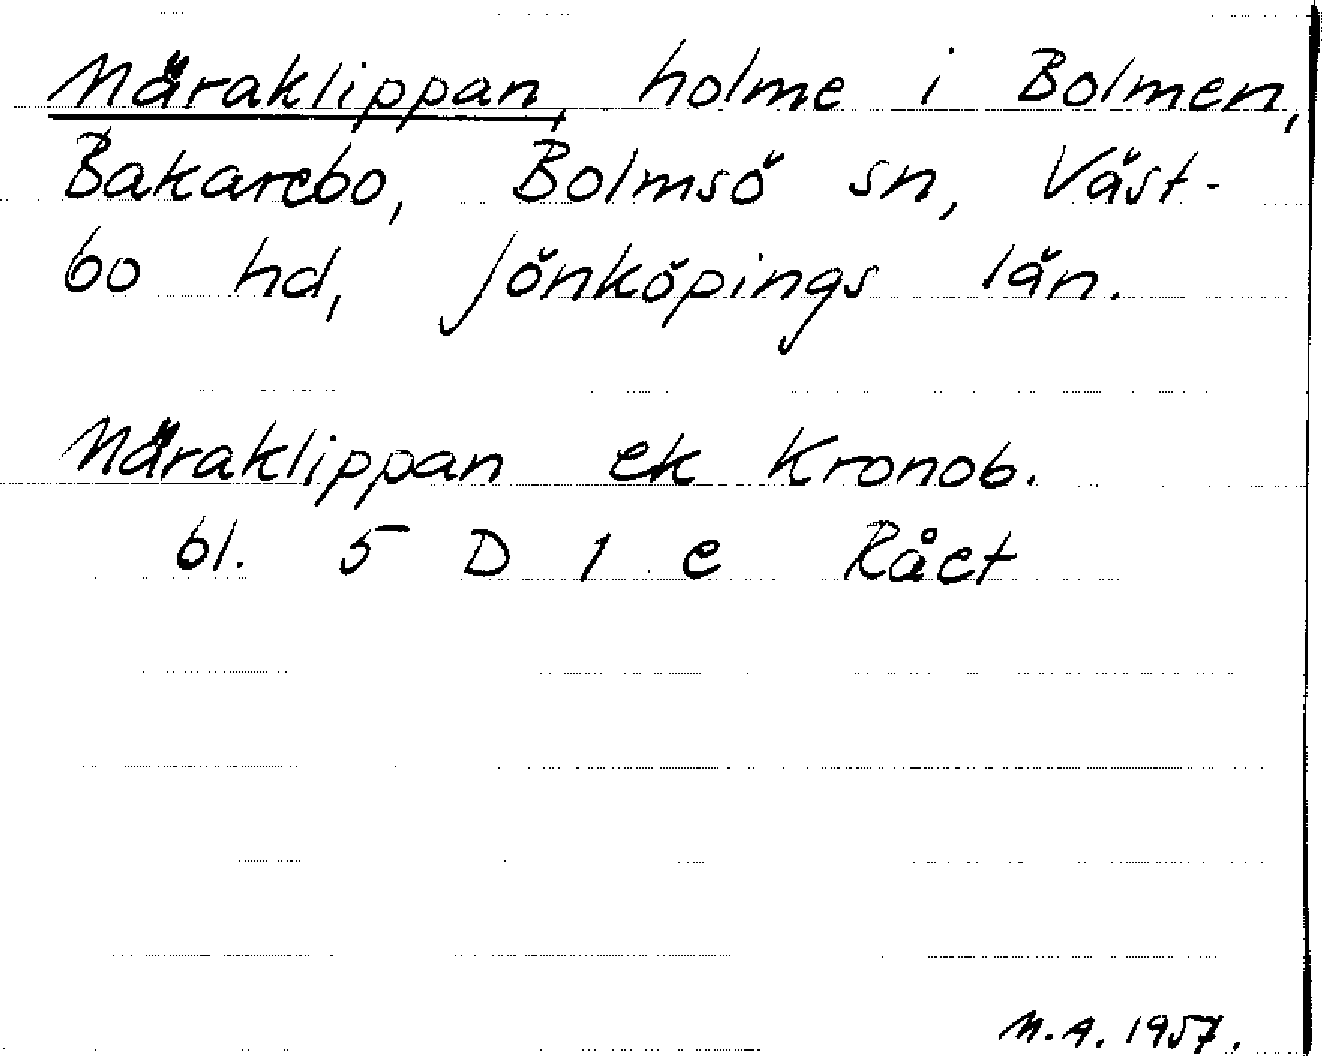 Märaklippan, holme i Bolmen,
Bakarebo, Bolmsö sn, Väst-
bo hd, Jönköpings län.
Märaklippan ek Kronob.
bl. 5 D 1 e Rået
M.A. 1957.